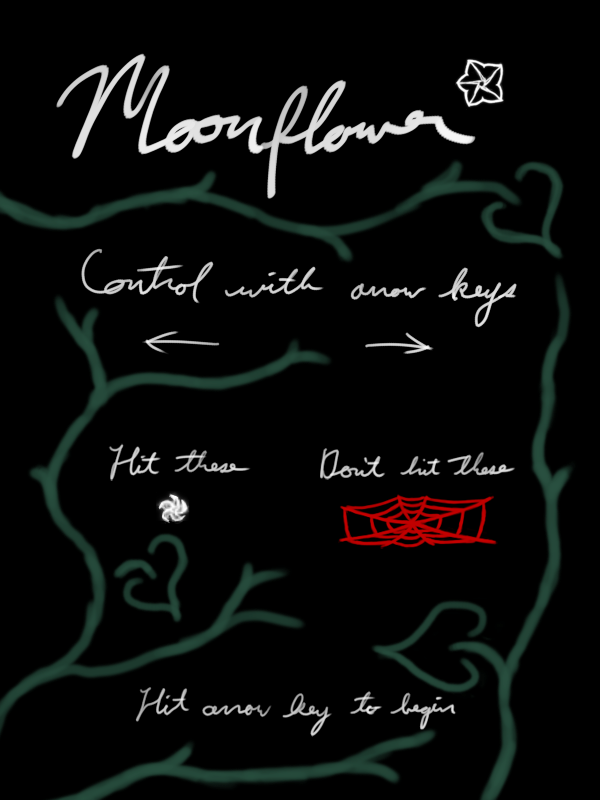 Moonflower
Control with arrow keys
Hit these
Don't hit these
Hit arrow key to begin